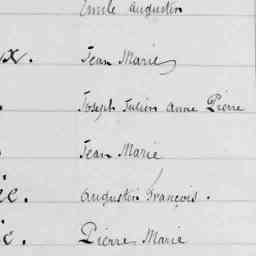 Emile Augustin
x. Jean Marie
Joseph Julien Anne Pierre
Jean Marie
e. Augustin François.
e. Pierre Marie